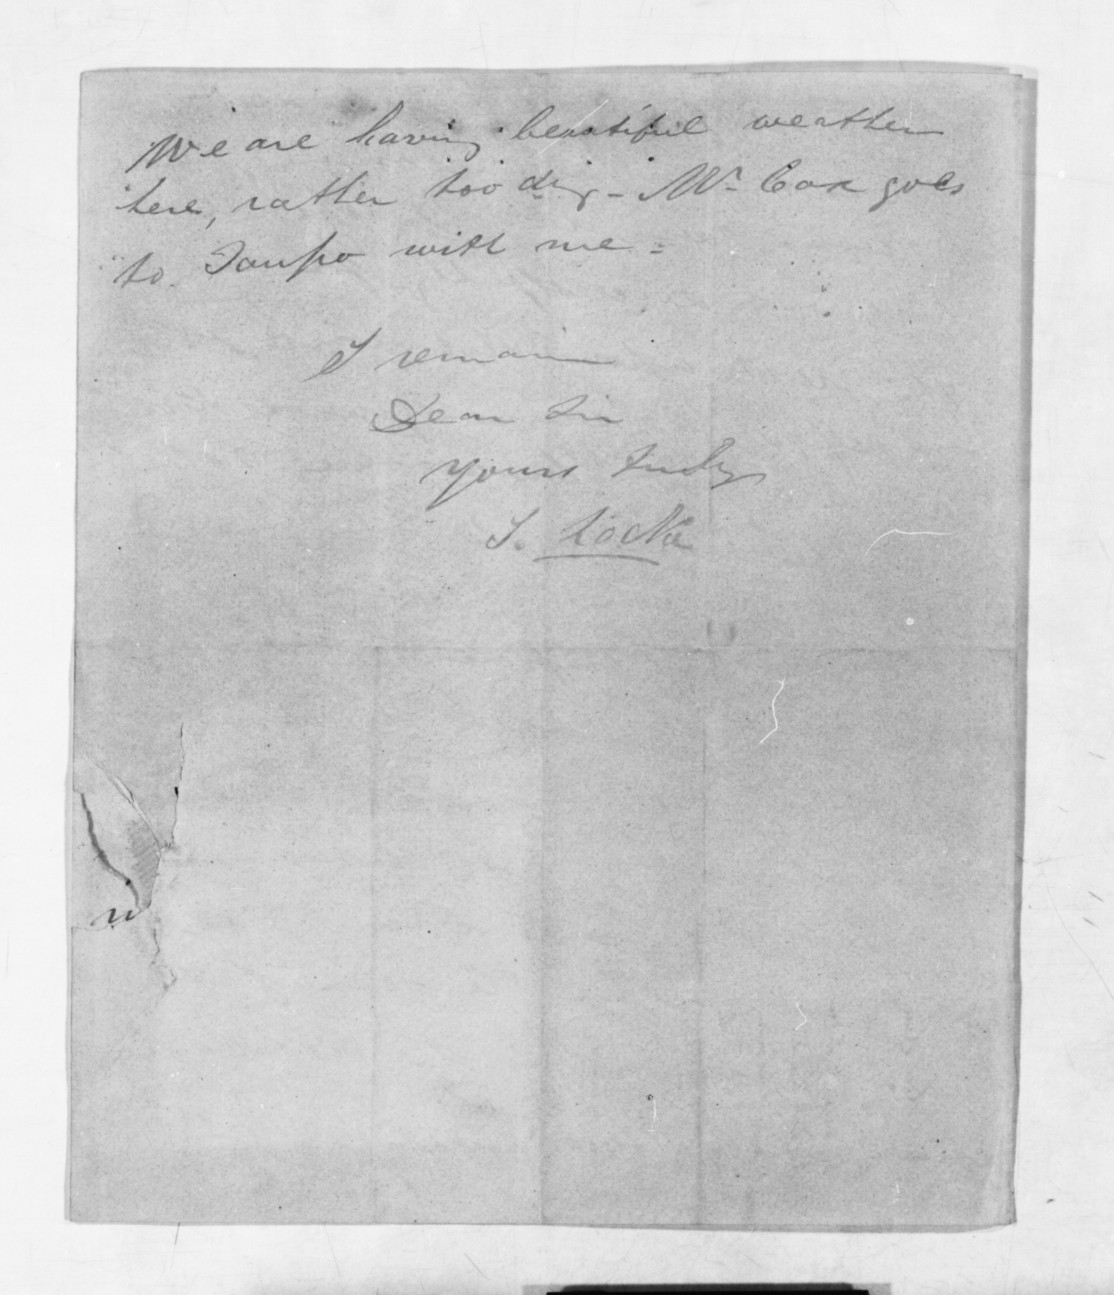 We are having beautiful weather
here, rather too dry - Mr Cox goes
to Taupo with me =
I remain
Dear Sir
Yours truly
S. Locke